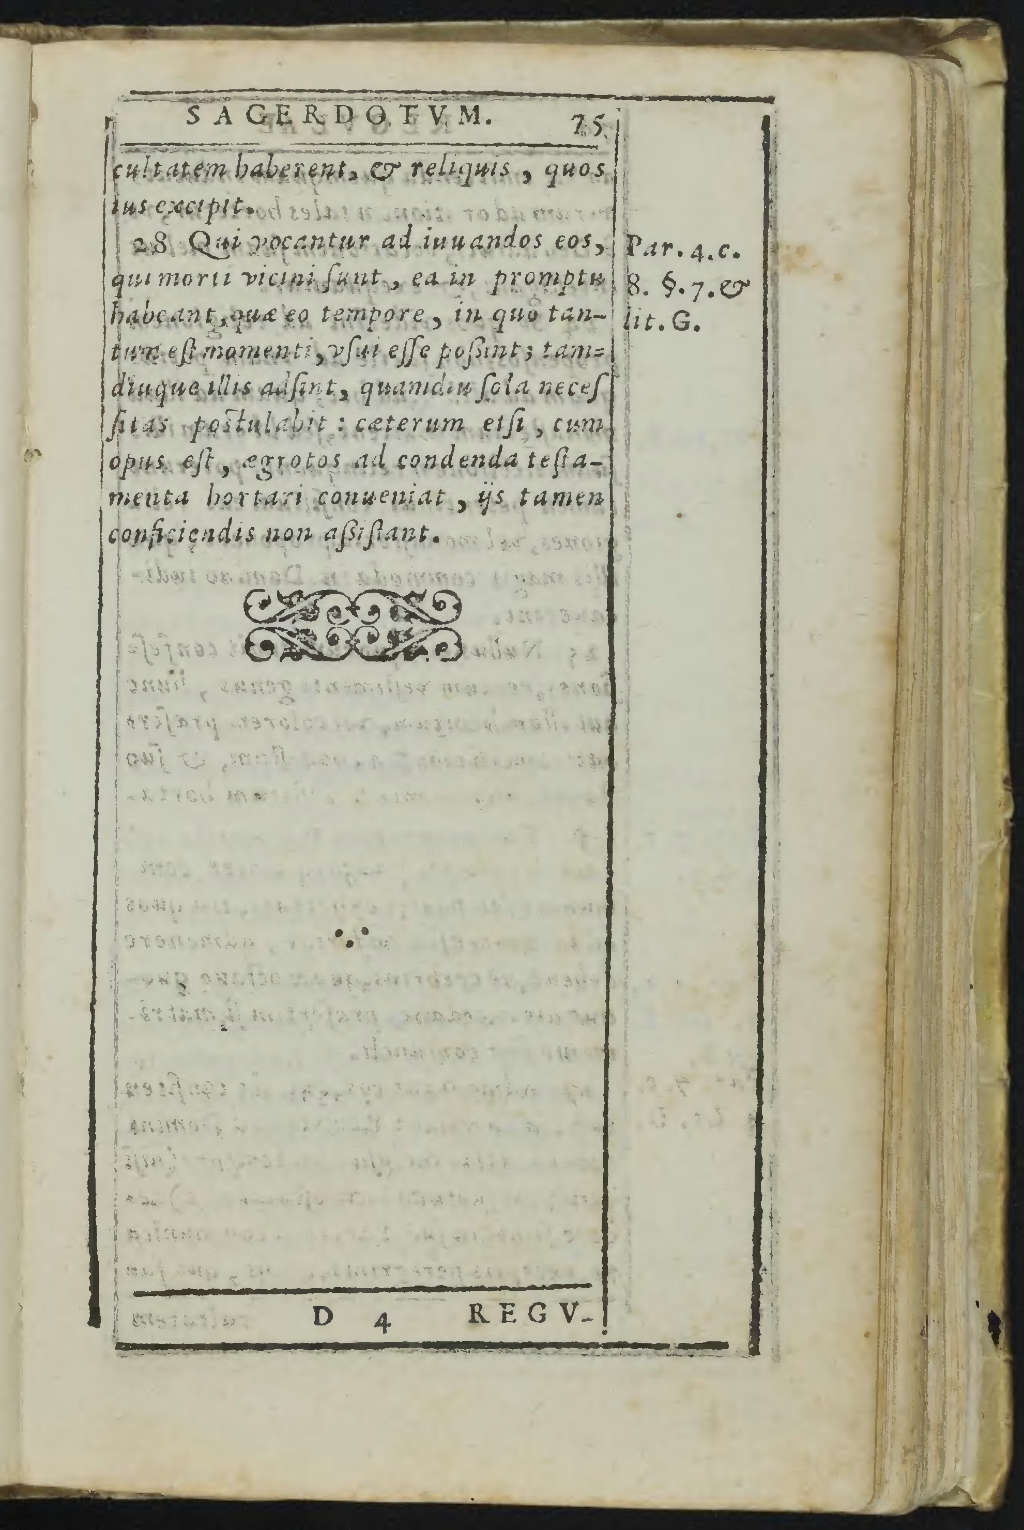 SACERDOTVM. 75
cultatem haberent, & reliquis, quos
ius excipit.
28 Qui vocantur ad iuuandos eos,
qui morti vicini ſunt, ea in promptu
habeant, quæ eo tempore, in quo tan-
tum eſt momenti, vſui eſſe poſsint; tam-
diuque illis adſint, quamdiu ſola neceſ
ſitas poſtulabit: cæterum etſi, cum
opus eſt, ægrotos ad condenda teſta-
menta hortari conueniat, ijs tamen
conficiendis non aſsiſtant.
Par. 4. c.
8. §. 7. &
lit. G.
D 4 REGV-